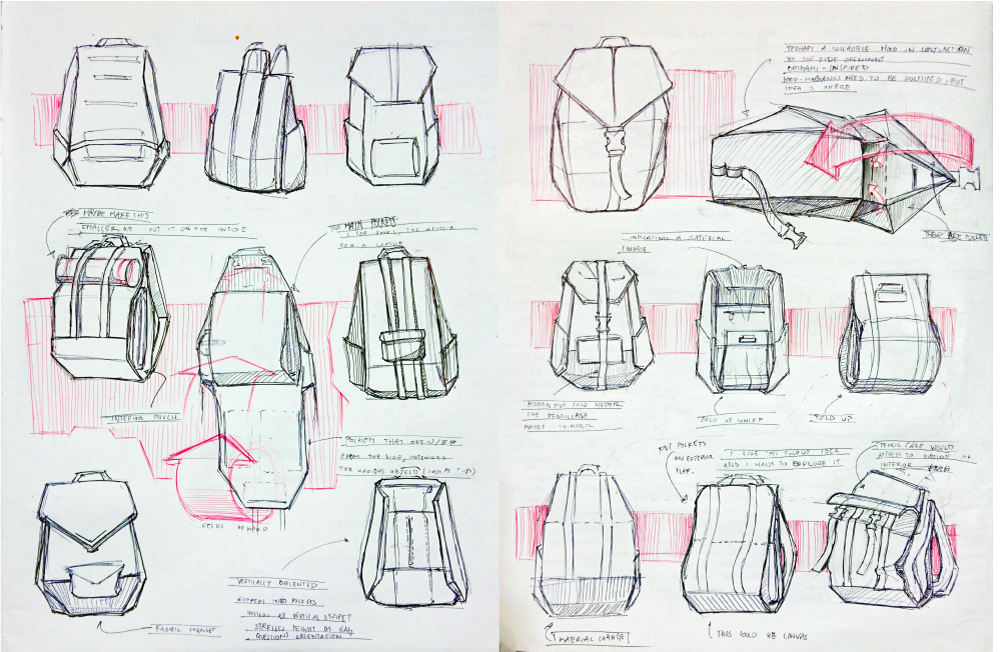 MAYBE MAKE THIS
SMALLER OR PUT IT ON THE INSIDE
MAIN POCKETS
FOR A LAPTOP
INTERIOR POUCH
POCKETS THAT OPEN
FROM THE SIDE, INTENDED
FOR VARIOUS OBJECTS
FOLDS
VERTICALLY ORIENTED
ZIPPERS INTO POCKETS
INSTEAD OF VERTICAL STRIPE?
STRESSES HEIGHT OF BAG
QUESTIONS ORIENTATION
FABRIC CHANGE
PERHAPS A FOLDABLE HOOD IN CONJUNCTION
TO THE SIDE OPENINGS
ORIGAMI-INSPIRED
MECHANICS NEED TO BE POLISHED, BUT
IDEA IS THERE
THESE ARE POCKETS
INDICATING A MATERIAL
CHANGE
PERHAPS PUT THIS UNDER
THE PENCILCASE
MAYBE THINNER
FOLD UP
PUT POCKETS
ON EXTERIOR
FLAP.
I LIKE THIS FOLDUP IDEA
AND I WANT TO EXPLORE IT
PENCIL CASE WOULD
ATTACH TO
INTERIOR
MATERIAL CHANGE
THIS COULD BE CANVAS